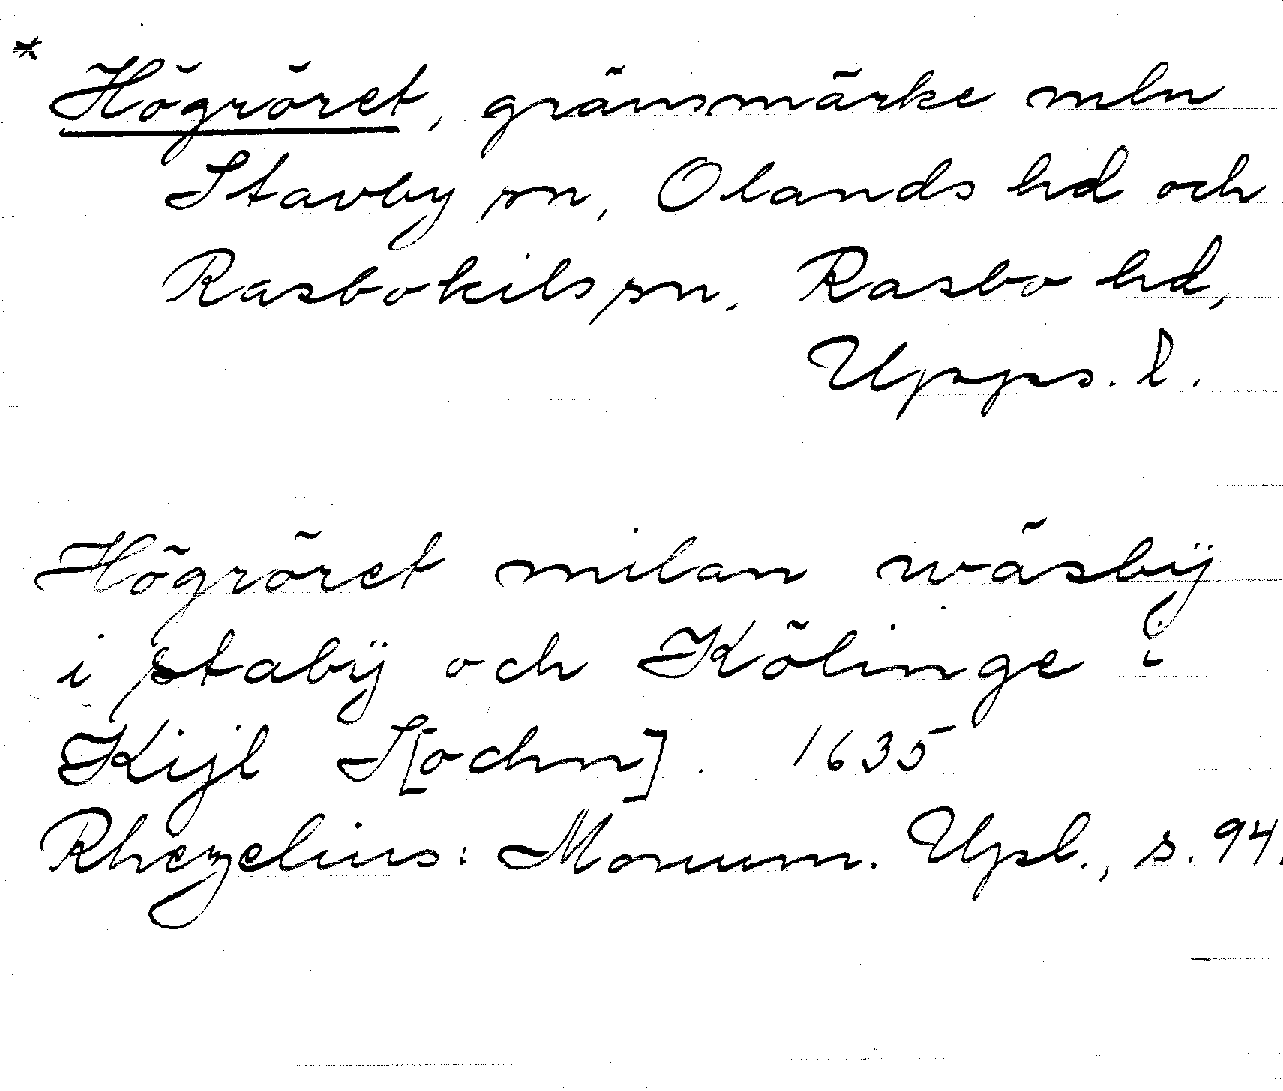 * Högröret, gränsmärke mln
Stavby sn, Olands hd och
Rasbokils sn, Rasbo hd,
Upps. l.
Högröret milan wäsbÿ
i stabÿ och Kölinge i
Kijl S[ochn]. 1635
Rhezelius: Monum. Upl., s. 94.